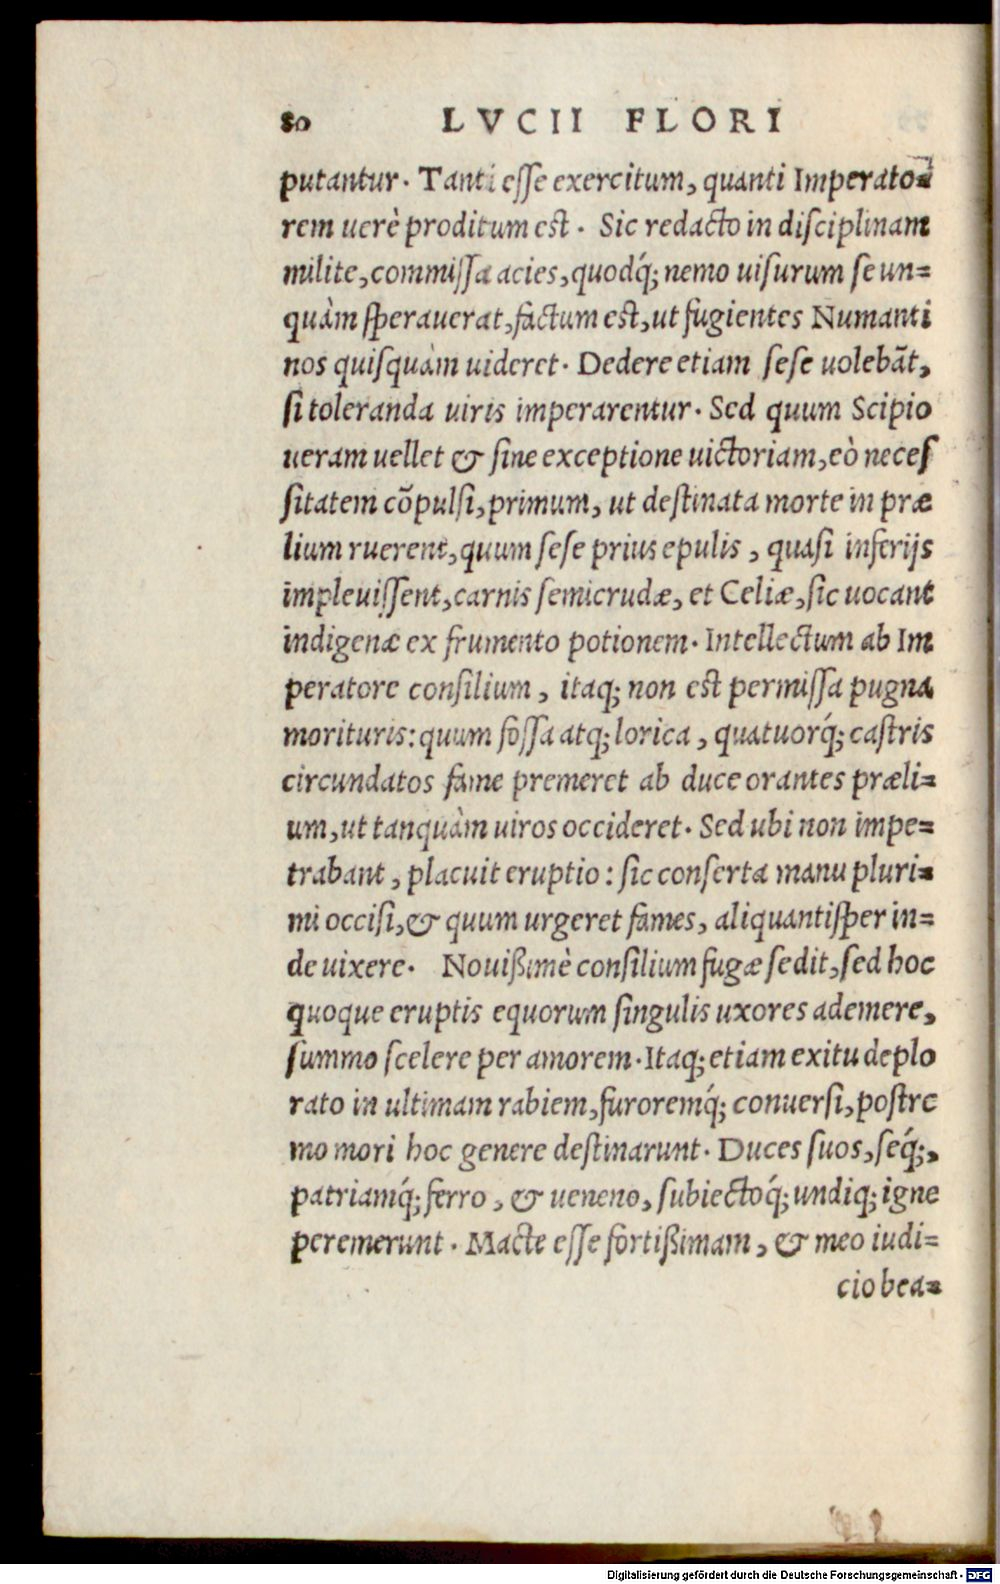 80 LVCII FLORI
putantur. Tanti esse exercitum, quanti Imperato-
rem uerè proditum est. Sic redacto in disciplinam
milite, commissa acies, quodq́; nemo uisurum se un-
quàm sperauerat, factum est, ut fugientes Numanti
nos quisquàm uideret. Dedere etiam sese uolebãt,
si toleranda uiris imperarentur. Sed quum Scipio
ueram uellet & sine exceptione uictoriam, eò neces
sitatem cõpulsi, primum, ut destinata morte in præ
lium ruerent, quum sese prius epulis, quasi inferijs
impleuissent, carnis semicrudæ, et Celiæ, sic uocant
indigenæ ex frumento potionem. Intellectum ab Im
peratore consilium, itaq; non est permissa pugna
morituris: quum fossa atq; lorica, quatuorq́; castris
circundatos fame premeret ab duce orantes præli-
um, ut tanquàm uiros occideret. Sed ubi non impe-
trabant, placuit eruptio: sic conserta manu pluri-
mi occisi, & quum urgeret fames, aliquantisper in-
de uixere. Nouißimè consilium fugæ sedit, sed hoc
quoque eruptis equorum singulis uxores ademere,
summo scelere per amorem. Itaq; etiam exitu deplo
rato in ultimam rabiem, furoremq́; conuersi, postre
mo mori hoc genere destinarunt. Duces suos, seq́;,
patriamq́; ferro, & ueneno, subiectoq́; undiq; igne
peremerunt. Macte esse fortißimam, & meo iudi-
cio bea-
Digitalisierung gefördert durch die Deutsche Forschungsgemeinschaft - DFG